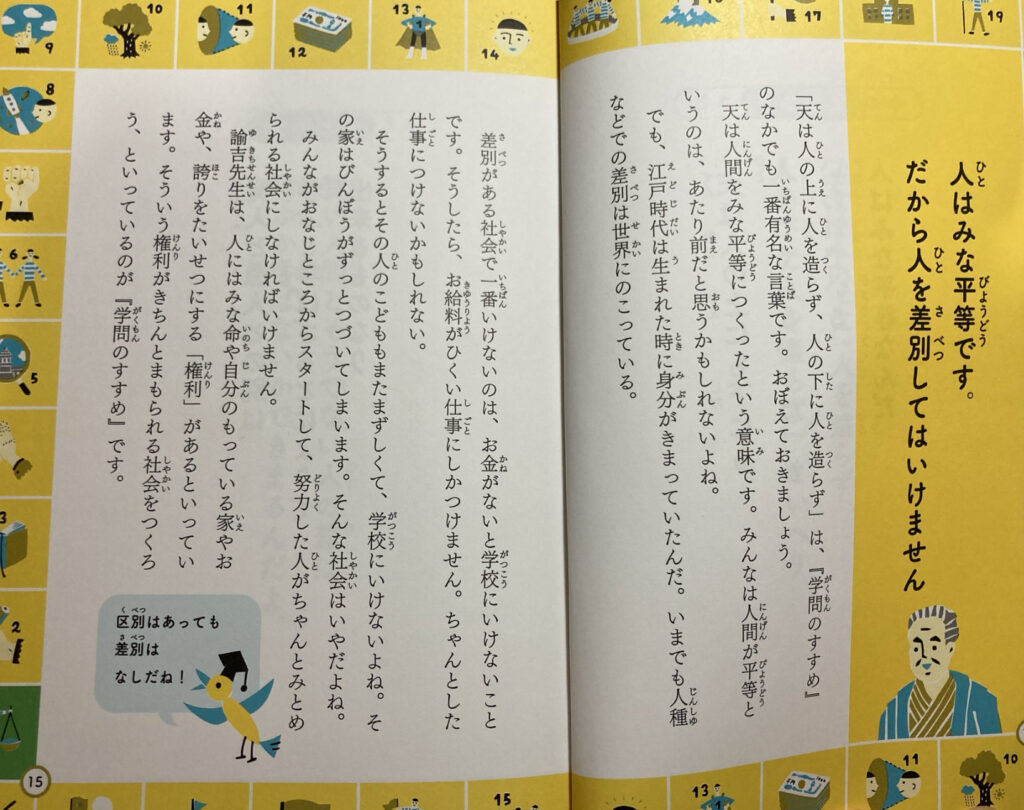 人はみな平等です。
だから人を差別してはいけません
「天は人の上に人を造らず、人の下に人を造らず」は、『学問のすすめ』
のなかでも一番有名な言葉です。おぼえておきましょう。
天は人間をみな平等につくったという意味です。みんなは人間が平等と
いうのは、あたり前だと思うかもしれないよね。
でも、江戸時代は生まれた時に身分がきまっていたんだ。いまでも人種
などでの差別は世界にのこっている。
差別がある社会で一番いけないのは、お金がないと学校にいけないこと
です。そうしたら、お給料がひくい仕事にしかつけません。ちゃんとした
仕事につけないかもしれない。
そうするとその人のこどももまたまずしくて、学校にいけないよね。そ
の家はびんぼうがずっとつづいてしまいます。そんな社会はいやだよね。
みんながおなじところからスタートして、努力した人がちゃんとみとめ
られる社会にしなければいけません。
諭吉先生は、人にはみな命や自分のもっている家やお
金や、誇りをたいせつにする「権利」があるといってい
ます。そういう権利がきちんとまもられる社会をつくろ
う、といっているのが『学問のすすめ』です。
区別はあっても
差別は
なしだね！
15
9
10
11
12
13
14
17
19
8
6
5
3
2
15
13
11
10